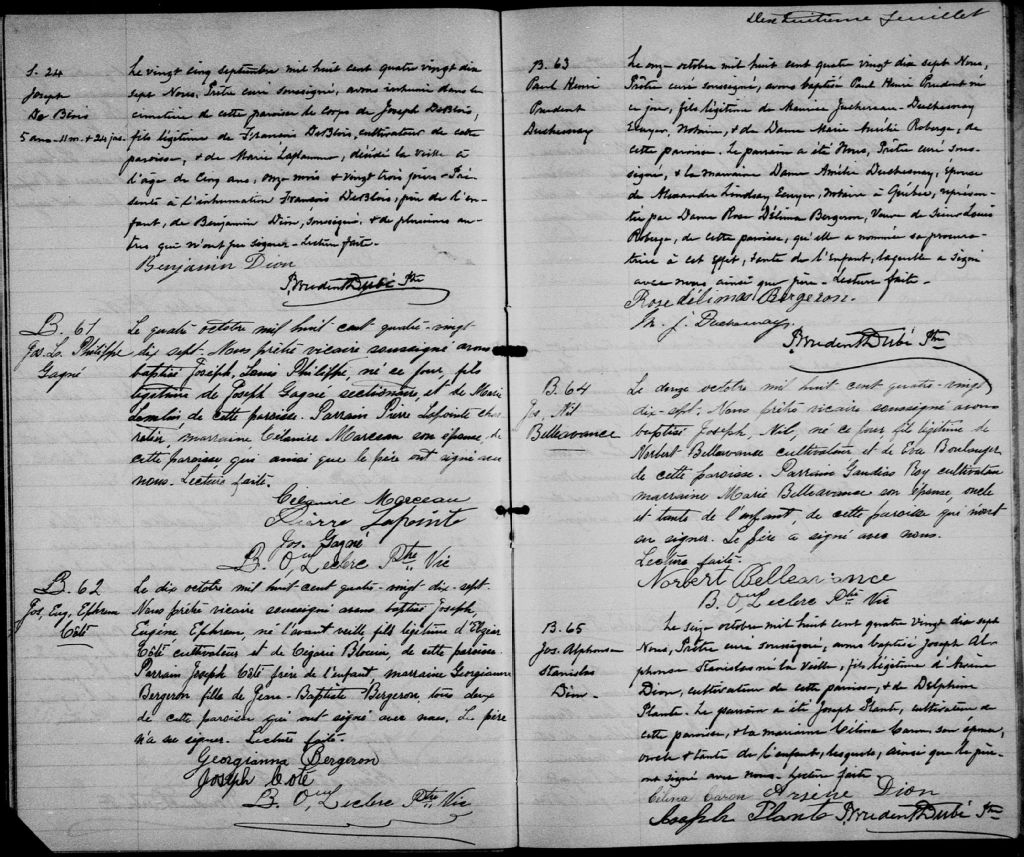 S. 24
Joseph
De Blois
5 ans-11 m. & 24 jrs.
Le vingt cinq septembre mil huit cent quatre vingt dix
sept Nous, Prêtre curé soussigné, avons inhumé dans le
cimetière de cette paroisse le corps de Joseph DeBlois,
fils légitime de Francois DeBlois, cultivateur de cette
paroisse, & de Marie Laflamme, décédé la veille à
l'âge de Cinq ans, onze mois & vingt trois jours. Pré-
sents à l'inhumation Francois DeBlois, père de l'en-
fant, de Benjamin Dion, soussigné, & de plusieurs au-
tres qui n'ont pu signer. Lecture faite.
Benjamin Dion
Prudent Dubé Ptre
B. 61
Jos. Ls. Philippe
Gagné
Le quatre octobre mil huit cent quatre-vingt
dix sept. Nous prêtre vicaire soussigné avons
baptisé Joseph, Louis Philippe, né ce jour, fils
légitime de Joseph Gagné sectionnaire, et de Marie
de cette paroisse. Parrain Pierre Lapointe char
retier, marraine Célamire Marceau son épouse, de
cette paroisse, qui ainsi que le père ont signé avec
nous. Lecture faite.
Célamire Marceau
Pierre Lapointe
Jos. Gagné
B. Ou Leclerc Ptre Vic
B. 62
Jos, Eug, Ephrem
Côté
Le dix octobre mil huit cent quatre-vingt dix-sept.
Nous prêtre vicaire soussigné avons baptisé Joseph
Eugène Ephrem, né l'avant veille fils légitime d'Elzéar
Côté cultivateur et de Cézarie Blouin, de cette paroisse.
Parrain Joseph Côté frère de l'enfant, marraine Georgianna
Bergeron fille de Jean-Baptiste Bergeron, tous deux
de cette paroisse qui ont signé avec nous. Le père
n'a su signer. Lecture faite.
Georgianna Bergeron
Joseph Coté
B. Ou Leclerc Ptre Vic
Dix huitième feuillet
B. 63
Paul Henri
Prudent
Duchesnay
Le onze octobre mil huit cent quatre vingt dix sept Nous,
Prêtre curé soussigné, avons baptisé Paul Henri Prudent né
ce jour, fils légitime de Maurice Juchereau-Duchesnay
Ecuyer, Notaire, & de Dame Marie Aurélie Roberge, de
cette paroisse. Le parrain a été Nous, Prêtre curé sous-
signé, & la marraine Dame Amélie Duchesnay, épouse
de Alexandre Lindsay Ecuyer, Notaire à Québec, représen-
tée par Dame Rose Délima Bergeron, Veuve de Sieur Louis
Roberge, de cette paroisse, qu'elle a nommée sa procura-
trice à cet effet, tante de l'Enfant, laquelle a signé
avec nous ainsi que père. Lecture faite.
Rose délima Bergeron.
M. J. Duchesnay.
Prudent Dubé Ptre
B. 64
Jos, Nil
Belleavance
Le douze octobre mil huit cent quatre-vingt
dix-sept. Nous prêtre vicaire soussigné avons
baptisé Joseph, Nil, né ce jour fils légitime de
Norbert Belleavance cultivateur et de Eva Boulanger
de cette paroisse. Parrain Gaudias Roy cultivateur
marraine Marie Belleavance son épouse, oncle
et tante de l'enfant, de cette paroisse qui n'ont
su signer. Le père a signé avec nous.
Lecture faite.
Norbert Belleavance
B. Ou Leclerc Ptre Vic
B. 65
Jos. Alphonse
Stanislas
Dion.
Le seize octobre mil huit cent quatre vingt dix sept
Nous, Prêtre curé soussigné, avons baptisé Joseph Al-
phonse Stanislas né la Veille, fils légitime d'Arsène
Dion, cultivateur de cette paroisse, & de Delphine
Plante. Le parrain a été Joseph Plante, cultivateur de
cette paroisse, & la marraine Célina Caron son épouse,
oncle & tante de l'enfant, lesquels, ainsi que le père
ont signé avec nous. Lecture faite.
Célina Caron Arsène Dion
Joseph Plante Prudent Dubé Ptre